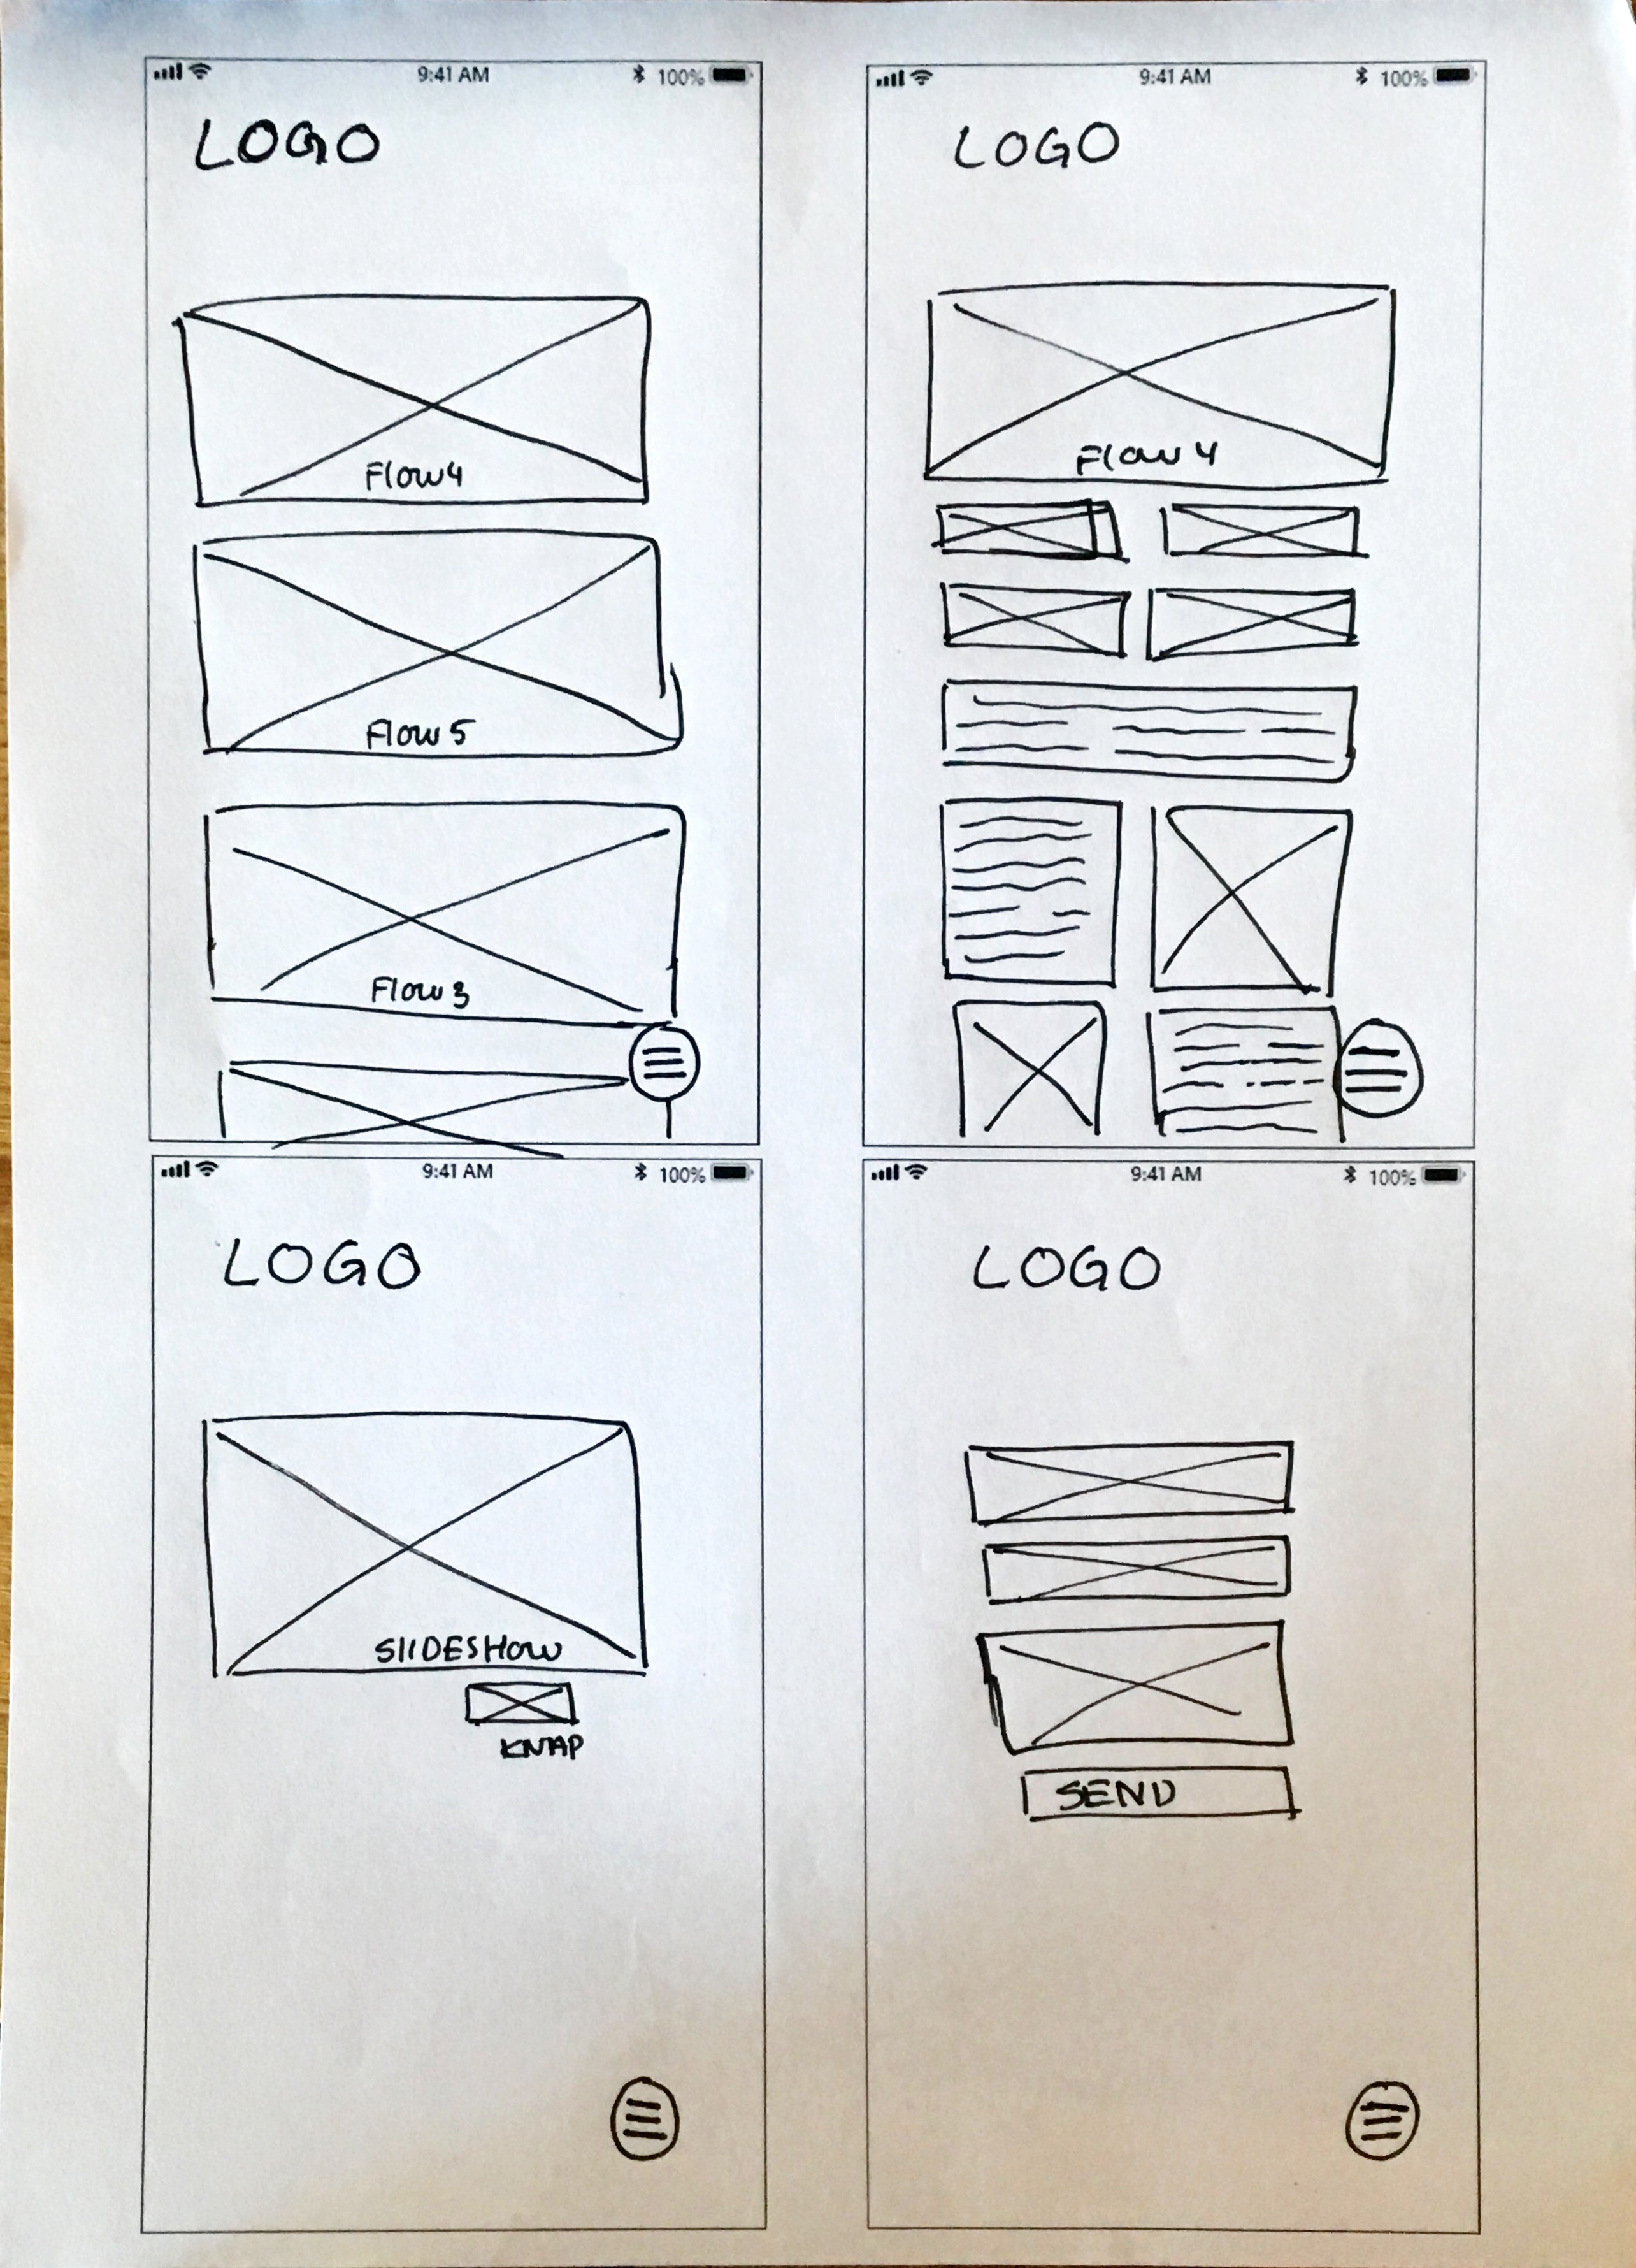 9:41 AM 100%
LOGO
Flow4
Flow5
Flow3
9:41 AM 100%
LOGO
Flow 4
9:41 AM 100%
LOGO
SlIDESHOW
KNAP
9:41 AM 100%
LOGO
SEND